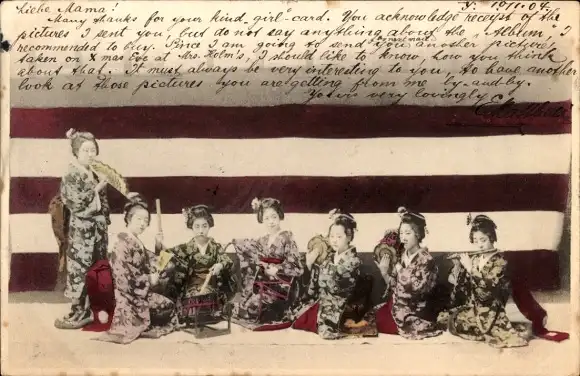 Liebe Mama! Y. 10/11.04.
Many thanks for your kind "girl"-card. You acknowledge receipt of the
pictures I sent you, but do not say anything about the "Album", I
recommended to buy. Since I am going to send you another picture,
taken on Xmas Eve at Mrs. Holm's, I should like to know, how you think
about that. It must always be very interesting to you, to have another
look at those pictures you are getting from me by-and-by.
Yours very lovingly